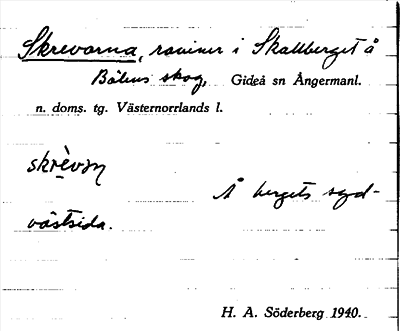 Skrevorna, raviner i Skallberget å
Bölens skog, Gideå sn Ångermanl.
n. doms. tg. Västernorrlands l.
skrèvɔɳ
Å bergets syd-
västsida.
H. A. Söderberg 1940.